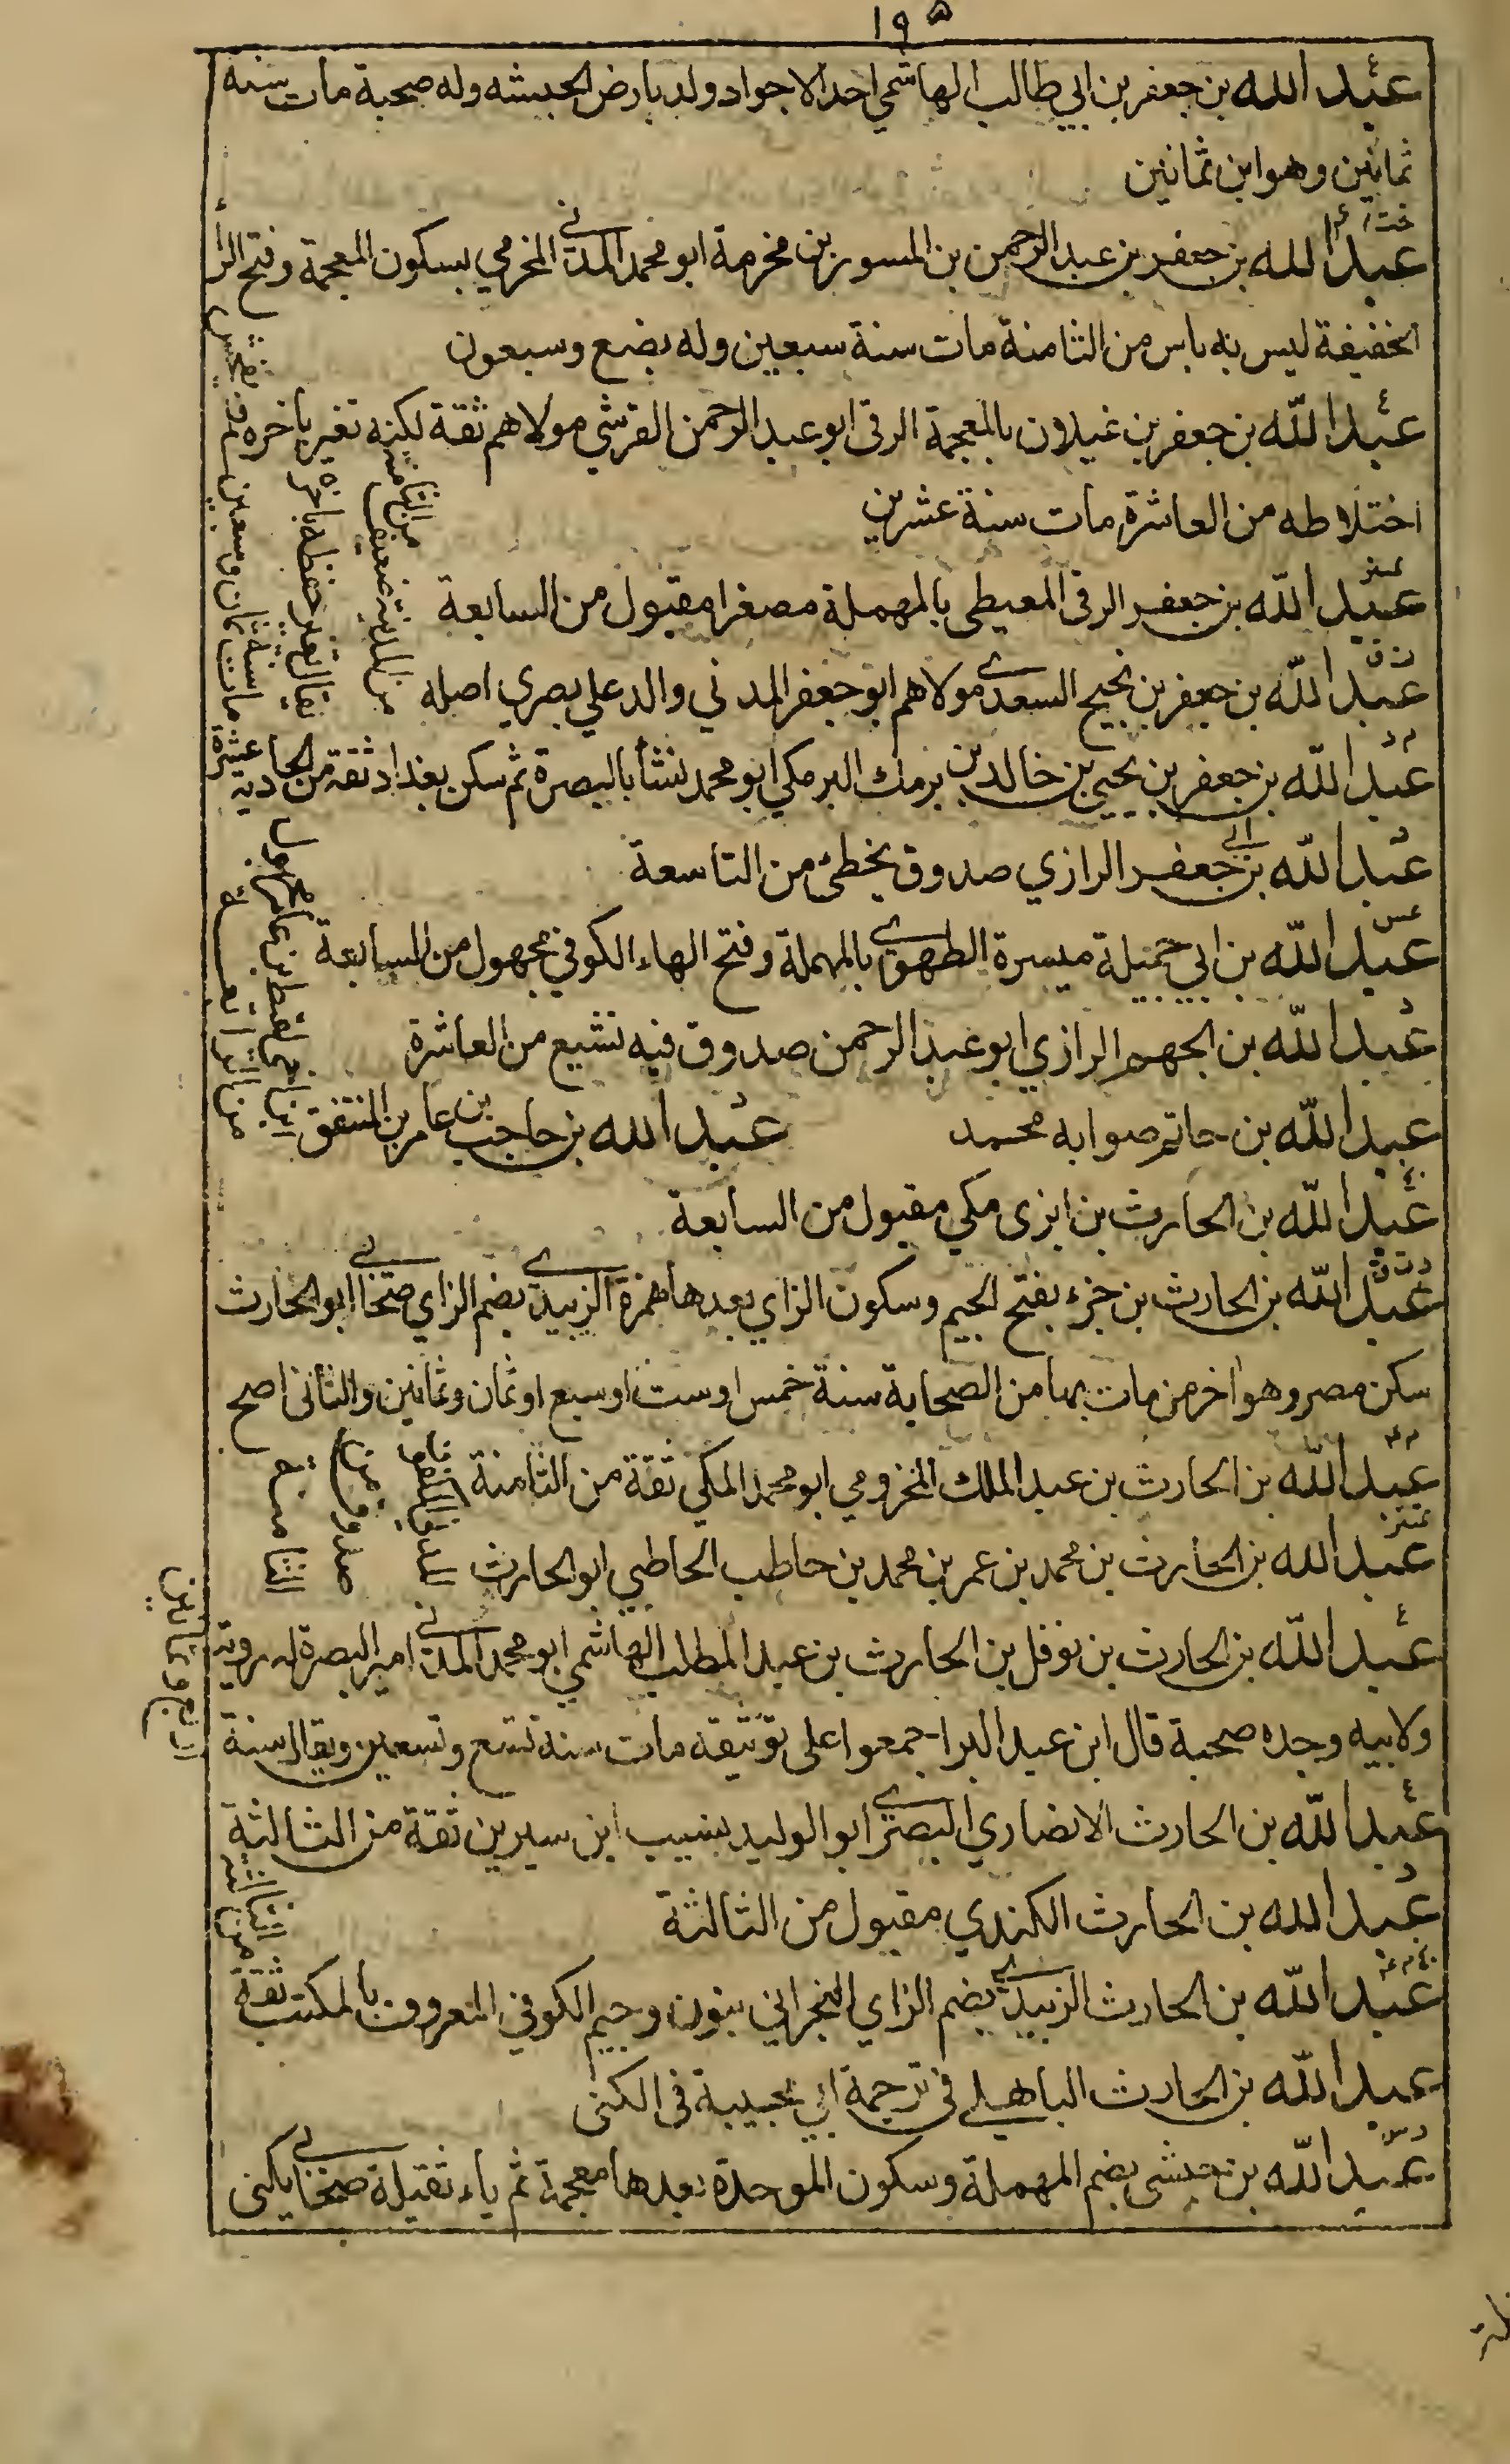 ١٩٥
عبد الله بن جعفر بن ابي طالب الهاشمي احد الاجواد ولد بارض الحبشه وله صحبة مات سنه
ثمانين وهو ابن ثمانين
عبد الله بن جعفر بن عبد الرحمن بن المسور بن مخرمة ابو محمد المدني المخرمي بسكون المعجمة وفتح الراء
الخفيفة ليس به باس من الثامنة مات سنة سبعين وله بضع وسبعون
عبد الله بن جعفر بن غيلان بالمعجمة الرقي ابو عبد الرحمن القرشي مولاهم ثقة لكنه تغير باخره فلم يفحش
اختلاطه من العاشرة مات سنة عشرين
عبد الله بن جعفر الرقي المعيطي بالمهملة مصغرا مقبول من السابعة
عبد الله بن جعفر بن نجيح السعدي مولاهم ابو جعفر المدني والد علي بصري اصله
من المدينة ضعيف من الثامنة
يقال تغير حفظه باخره
مات سنة ثمان وسبعين
عبد الله بن جعفر بن يحيى بن خالد بن برمك البرمكي ابو محمد نشأ بالبصرة ثم سكن بغداد ثقة من الحاديه عشرة
عبد الله بن ابي جعفر الرازي صدوق يخطئ من التاسعة
عبد الله بن ابي جميلة ميسرة الطهوي بالمهملة وفتح الهاء الكوفي مجهول من السابعة
عبد الله بن الجهم الرازي ابو عبد الرحمن صدوق فيه تشيع من العاشرة
عبد الله بن حاتم صوابه محمد
عبد الله بن حاجب بن عامر بن المنتفق
مجهول
عبد الله بن الحارث بن ابزى مكي مقبول من السابعة
عبد الله بن الحارث بن جزء بفتح الجيم وسكون الزاي بعدها همزة الزبيدي بضم الزاي صحابي ابو الحارث
سكن مصر وهو اخر من مات بها من الصحابة سنة خمس او ست او سبع او ثمان وثمانين والثاني اصح
عبد الله بن الحارث بن عبد الملك المخزومي ابو محمد المكي ثقة من الثامنة
عبد الله بن الحارث بن محمد بن عمر بن محمد بن حاطب الحاطبي ابو الحارث
صدوق من
الثامنة
عبد الله بن الحارث بن نوفل بن الحارث بن عبد المطلب الهاشمي ابو محمد المدني امير البصرة له روية
ولابيه وجده صحبة قال ابن عبد البر اجمعوا على توثيقه مات سنة تسع وتسعين ويقال سنة
اربع وثمانين
عبد الله بن الحارث الانصاري البصري ابو الوليد نسيب ابن سيرين ثقة من الثالثة
عبد الله بن الحارث الكندي مقبول من الثالثة
عبد الله بن الحارث الزبيدي بضم الزاي النجراني بنون وجيم الكوفي المعروف بالمكتب ثقة
من الثالثة
عبد الله بن الحارث الباهلي في ترجمة ابي مجيبة في الكنى
عبد الله بن حبشي بضم المهملة وسكون الموحدة بعدها معجمة ثم ياء ثقيلة صحابي يكنى